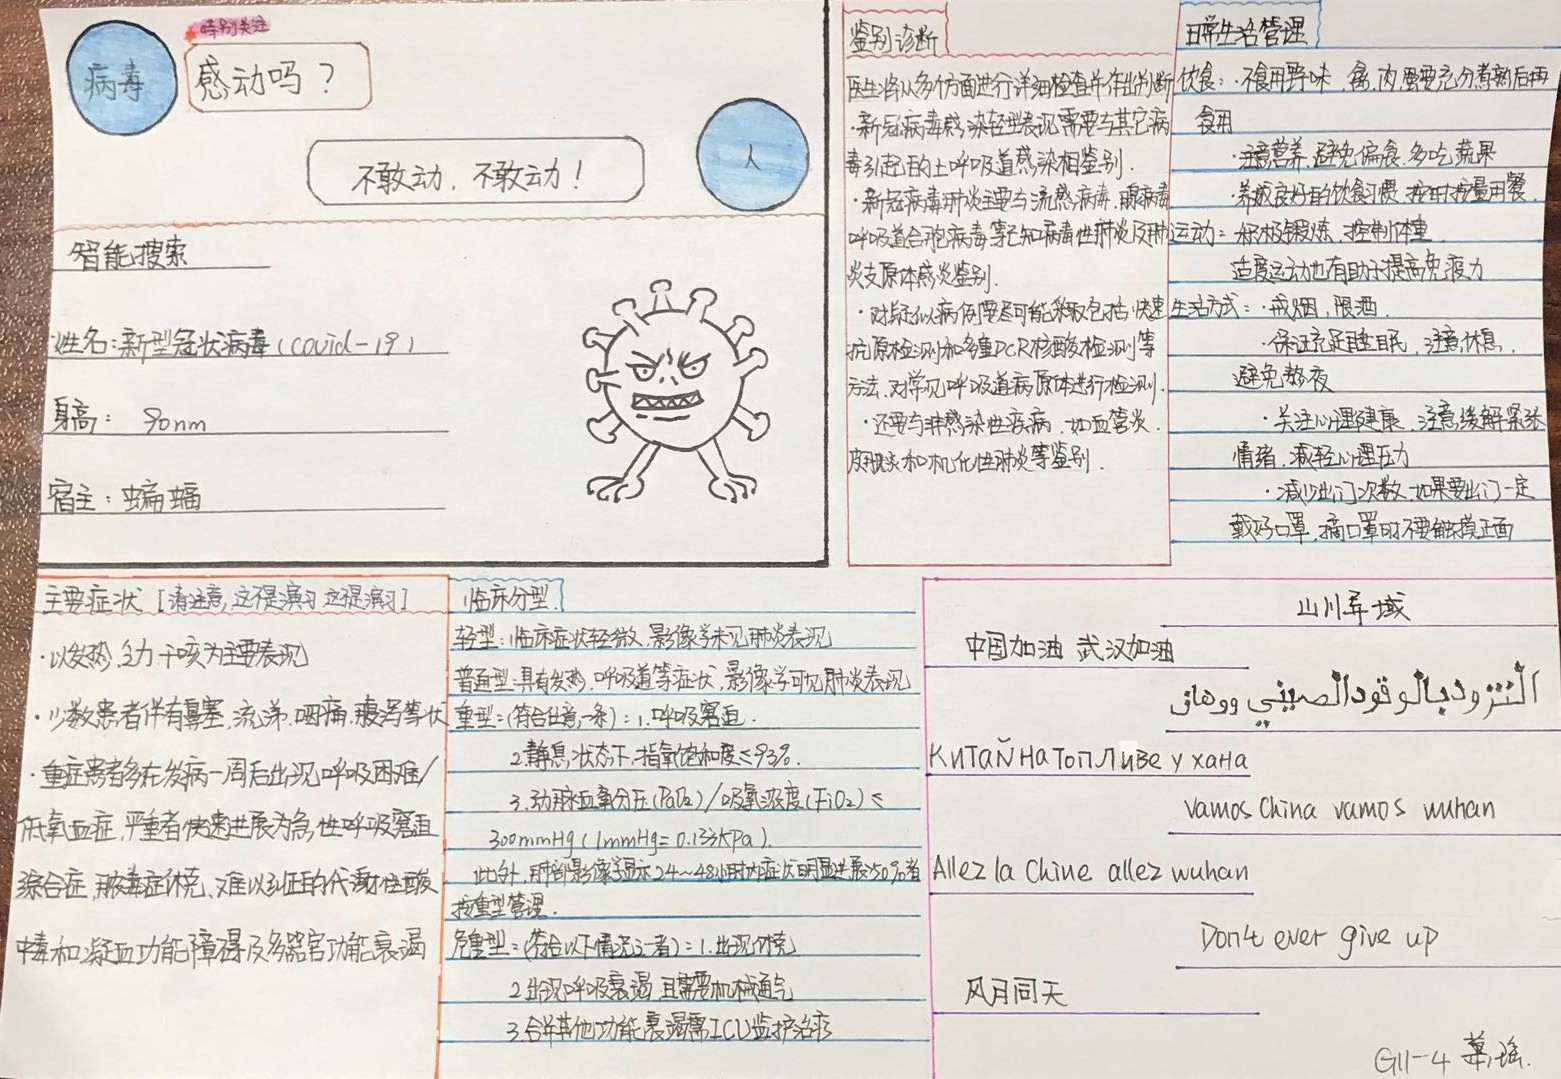 特别关注
病毒
感动吗？
不敢动，不敢动！
人
智能搜索
姓名：新型冠状病毒(covid-19)
身高： 90nm
宿主：蝙蝠
鉴别诊断
医生将从多个方面进行详细检查并作出判断
·新冠病毒感染轻型表现需要与其它病
毒引起的上呼吸道感染相鉴别.
·新冠病毒肺炎主要与流感病毒.腺病毒
呼吸道合胞病毒等已知病毒性肺炎及肺
炎支原体感炎鉴别.
·对疑似病例要尽可能采取包括快速
抗原检测和多重PCR核酸检测等
方法.对常见呼吸道病原体进行检测.
·还要与非感染性疾病，如血管炎.
皮肌炎和机化性肺炎等鉴别.
日常生活管理
饮食：·不食用野味，禽、肉、蛋要充分煮熟后再
食用
·注意营养.避免偏食.多吃蔬果
·养成良好的饮食习惯.按时按量用餐.
运动：积极锻炼.控制体重.
适度运动也有助于提高免疫力
生活方式：·戒烟，限酒.
·保证充足睡眠，注意休息，
避免熬夜
·关注心理健康.注意缓解紧张
情绪.减轻心理压力
·减少出门次数.如果要出门一定
戴好口罩，摘口罩时不要触摸正面
主要症状 [请注意,这不是演习 这不是演习]
·以发热 乏力 干咳为主要表现
·少数患者伴有鼻塞.流涕.咽痛.腹泻等状
·重症患者多在发病一周后出现呼吸困难/
低氧血症，严重者快速进展为急性呼吸窘迫
综合症，脓毒症休克、难以纠正的代谢性酸
中毒和凝血功能障碍及多器官功能衰竭
临床分型.
轻型：临床症状轻微.影像学未见肺炎表现
普通型：具有发热.呼吸道等症状，影像学可见肺炎表现
重型：(符合任意一条)：1.呼吸窘迫.
2.静息状态下，指氧饱和度≤93%.
3.动脉血氧分压(PaO₂)/吸氧浓度(FiO₂)≤
300mmHg(1mmHg=0.133kPa).
此外，肺部影像学显示24~48小时内症状明显进展>50%者
按重型管理.
危重型：(符合以下情况之一者)：1.出现休克
2.出现呼吸衰竭.且需要机械通气
3.合并其他功能衰竭需ICU监护治疗
山川异域
中国加油 武汉加油
التزود بالوقود الصيني ووهان
Китай на топливе ухана
vamos China vamos wuhan
Allez la Chine allez wuhan
Don't ever give up
风月同天
G11-4